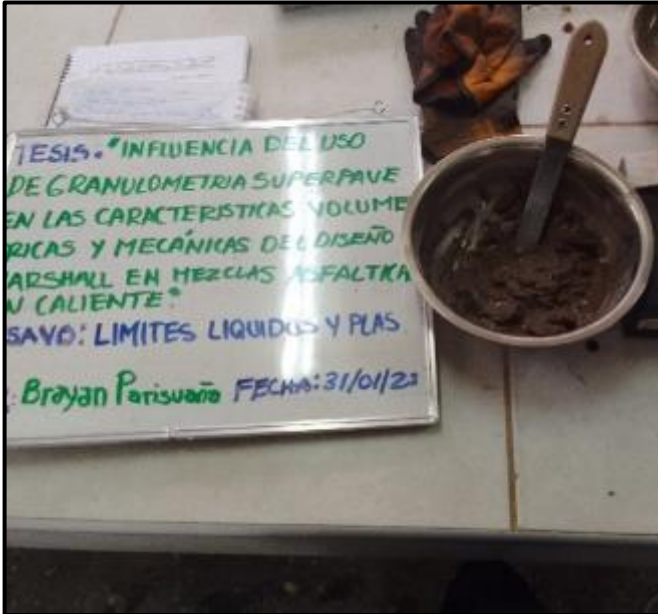 TESIS. "INFLUENCIA DEL USO
DE GRANULOMETRIA SUPERPAVE
EN LAS CARACTERISTICAS VOLUME
RICAS Y MECÁNICAS DEL DISEÑO
ARSHALL EN MEZCLAS ASFALTICA
N CALIENTE"
SAYO: LIMITES LIQUIDOS Y PLAS
: Brayan Parisuaña FECHA: 31/01/23